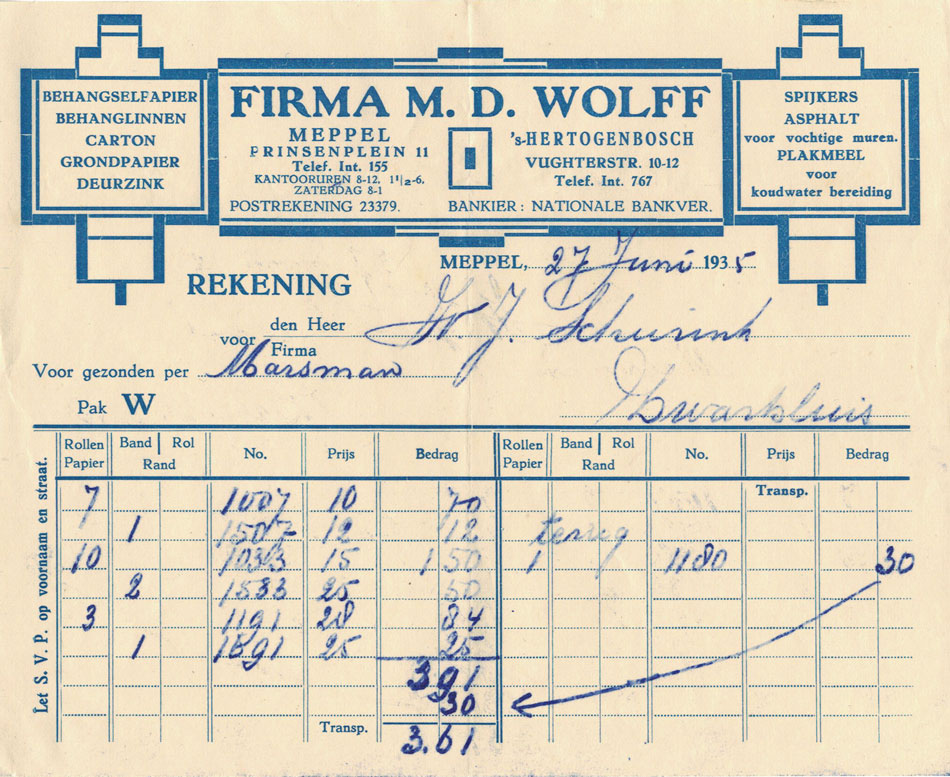 BEHANGSELPAPIER
BEHANGLINNEN
CARTON
GRONDPAPIER
DEURZINK
FIRMA M. D. WOLFF
MEPPEL
PRINSENPLEIN 11
Telef. Int. 155
KANTOORUREN 8-12, 1½-6,
ZATERDAG 8-1
POSTREKENING 23379.
's-HERTOGENBOSCH
VUGHTERSTR. 10-12
Telef. Int. 767
BANKIER: NATIONALE BANKVER.
SPIJKERS
ASPHALT
voor vochtige muren.
PLAKMEEL
voor
koudwater bereiding
MEPPEL, 27 Juni 1935
REKENING
voor den Heer Firma J. Schurink
Voor gezonden per Marsman
Zwartsluis
Pak W
Let S. V. P. op voornaam en straat.
Rollen Papier Band Rol Rand No. Prijs Bedrag Rollen Papier Band Rol Rand No. Prijs Bedrag
Transp.
7 1007 10 70
1 1507 12 12 terug
10 15 1 50 1 1180 30
2 1533 25 50
3 1191 28 84
1 1591 25 25
3 91
30
Transp. 3.61